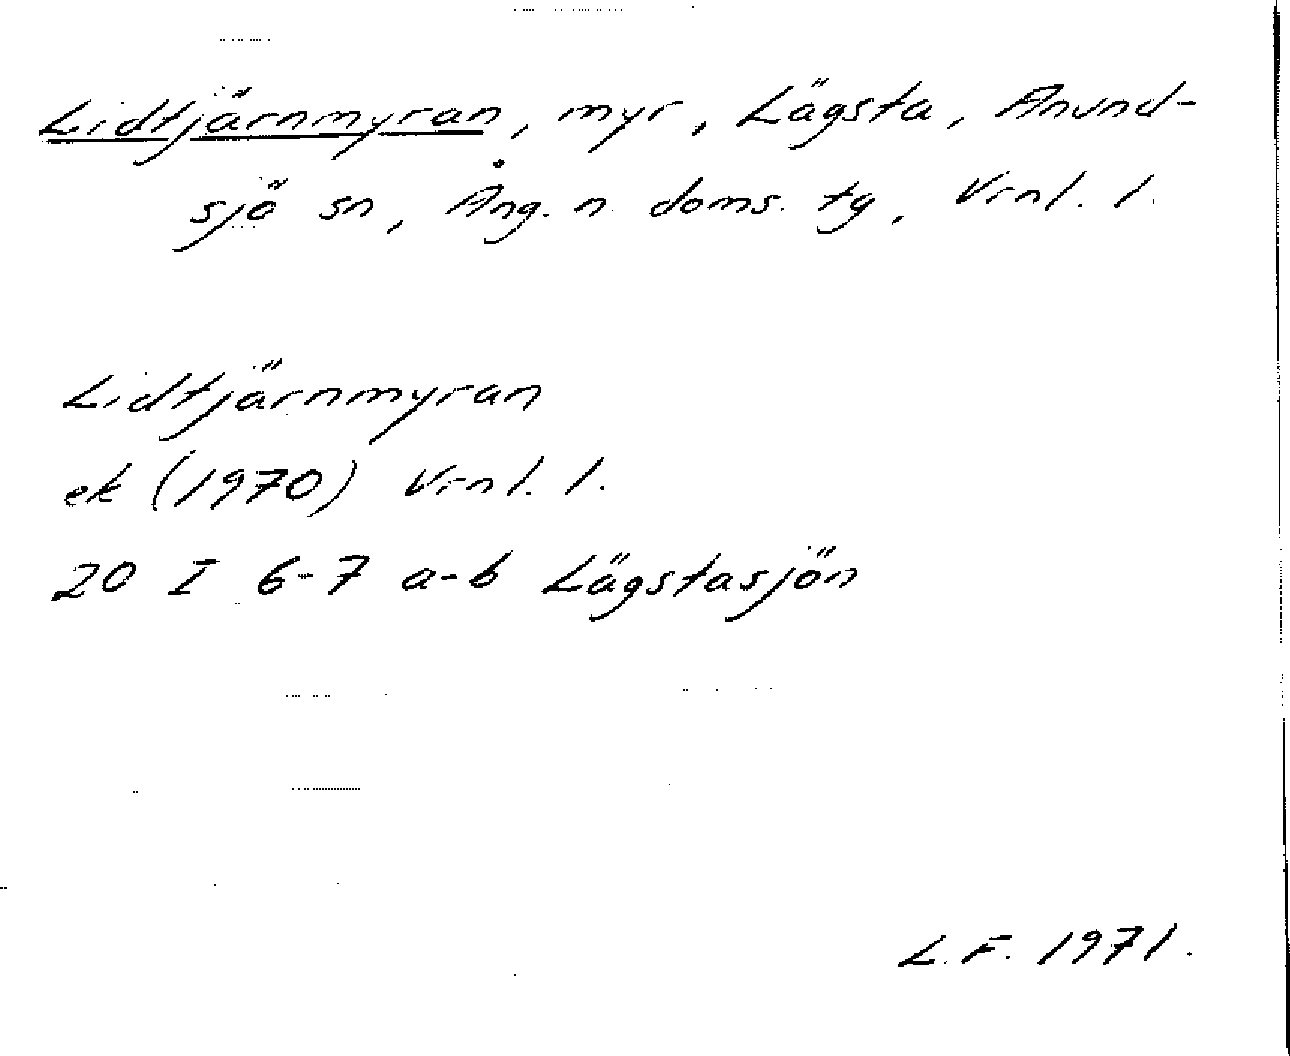 Lidtjärnmyran, myr, Lägsta, Anund-
sjö sn, Ång. n. doms. tg, Vrnl. l.
Lidtjärnmyran
ek (1970) Vrnl. l.
20 I 6-7 a-b Lägstasjön
L.F. 1971.